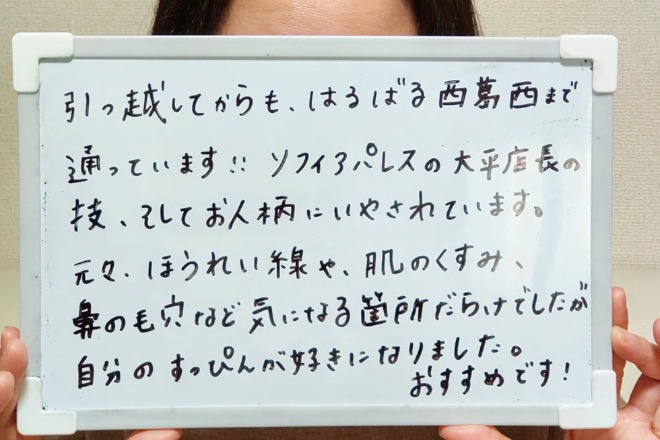 引っ越してからも、はるばる西葛西まで
通っています!! ソフィアパレスの大平店長の
技、そしてお人柄にいやされています。
元々、ほうれい線や、肌のくすみ、
鼻の毛穴など気になる箇所だらけでしたが
自分のすっぴんが好きになりました。
おすすめです!